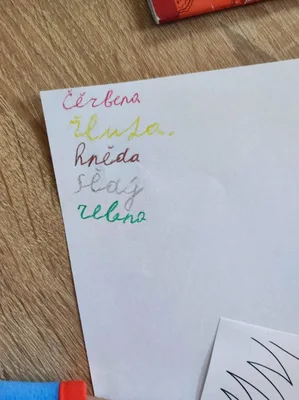 Čérbena
žluta.
hněda
šědý
zelena